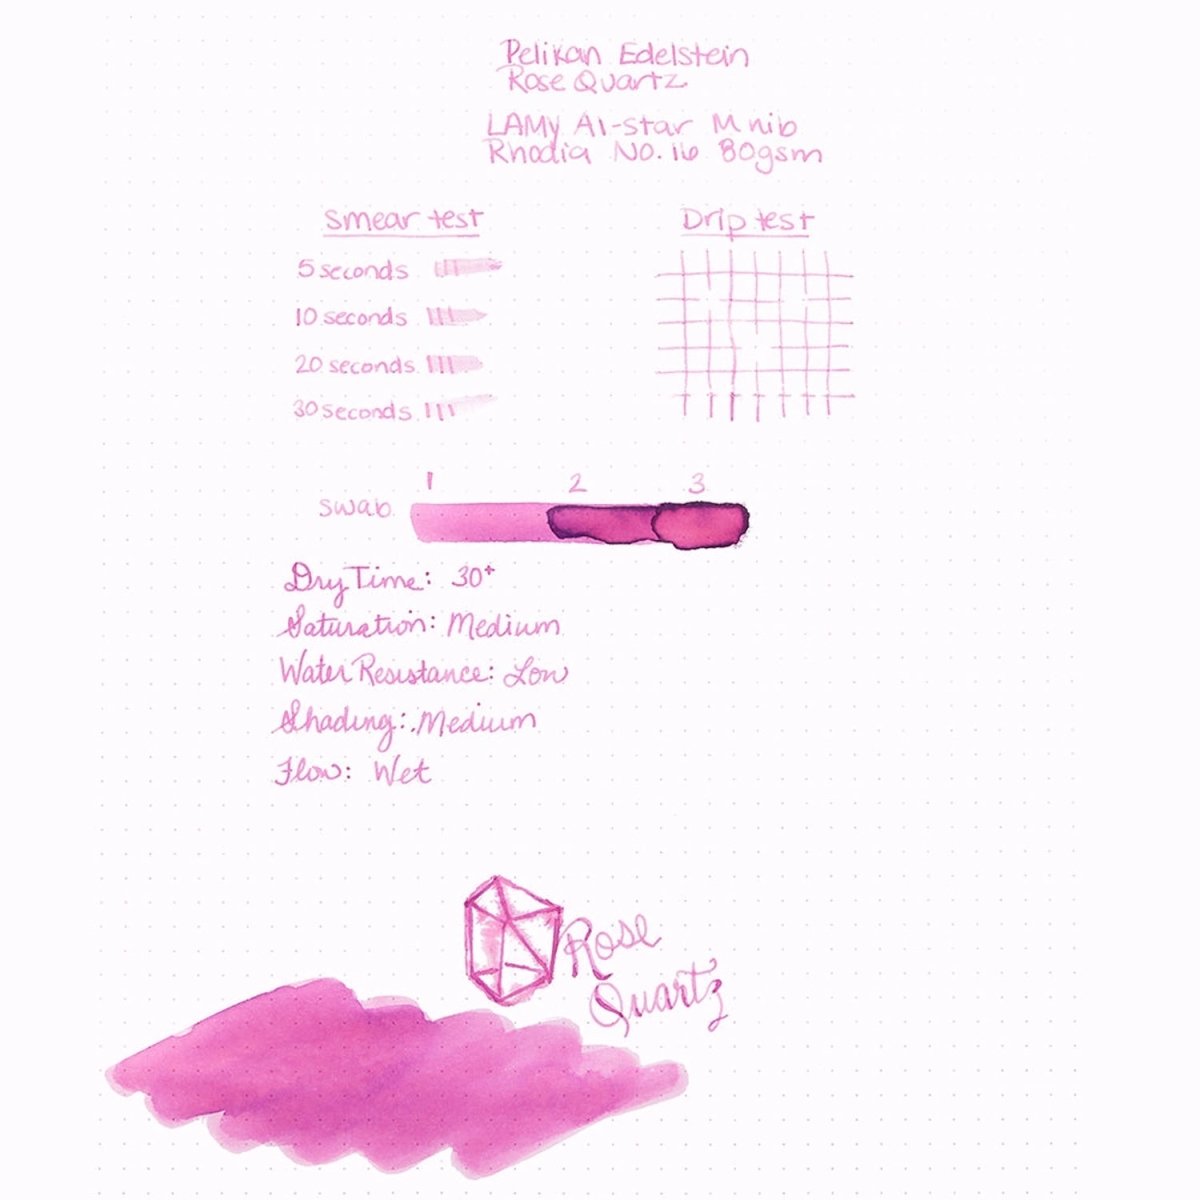 Pelikan Edelstein
Rose Quartz
LAMY Al-star M nib
Rhodia No. 16 80gsm
Smear test
5 seconds
10 seconds
20 seconds
30 seconds
Drip test
1 2 3
swab
Dry Time: 30+
Saturation: Medium
Water Resistance: Low
Shading: Medium
Flow: Wet
Rose
Quartz